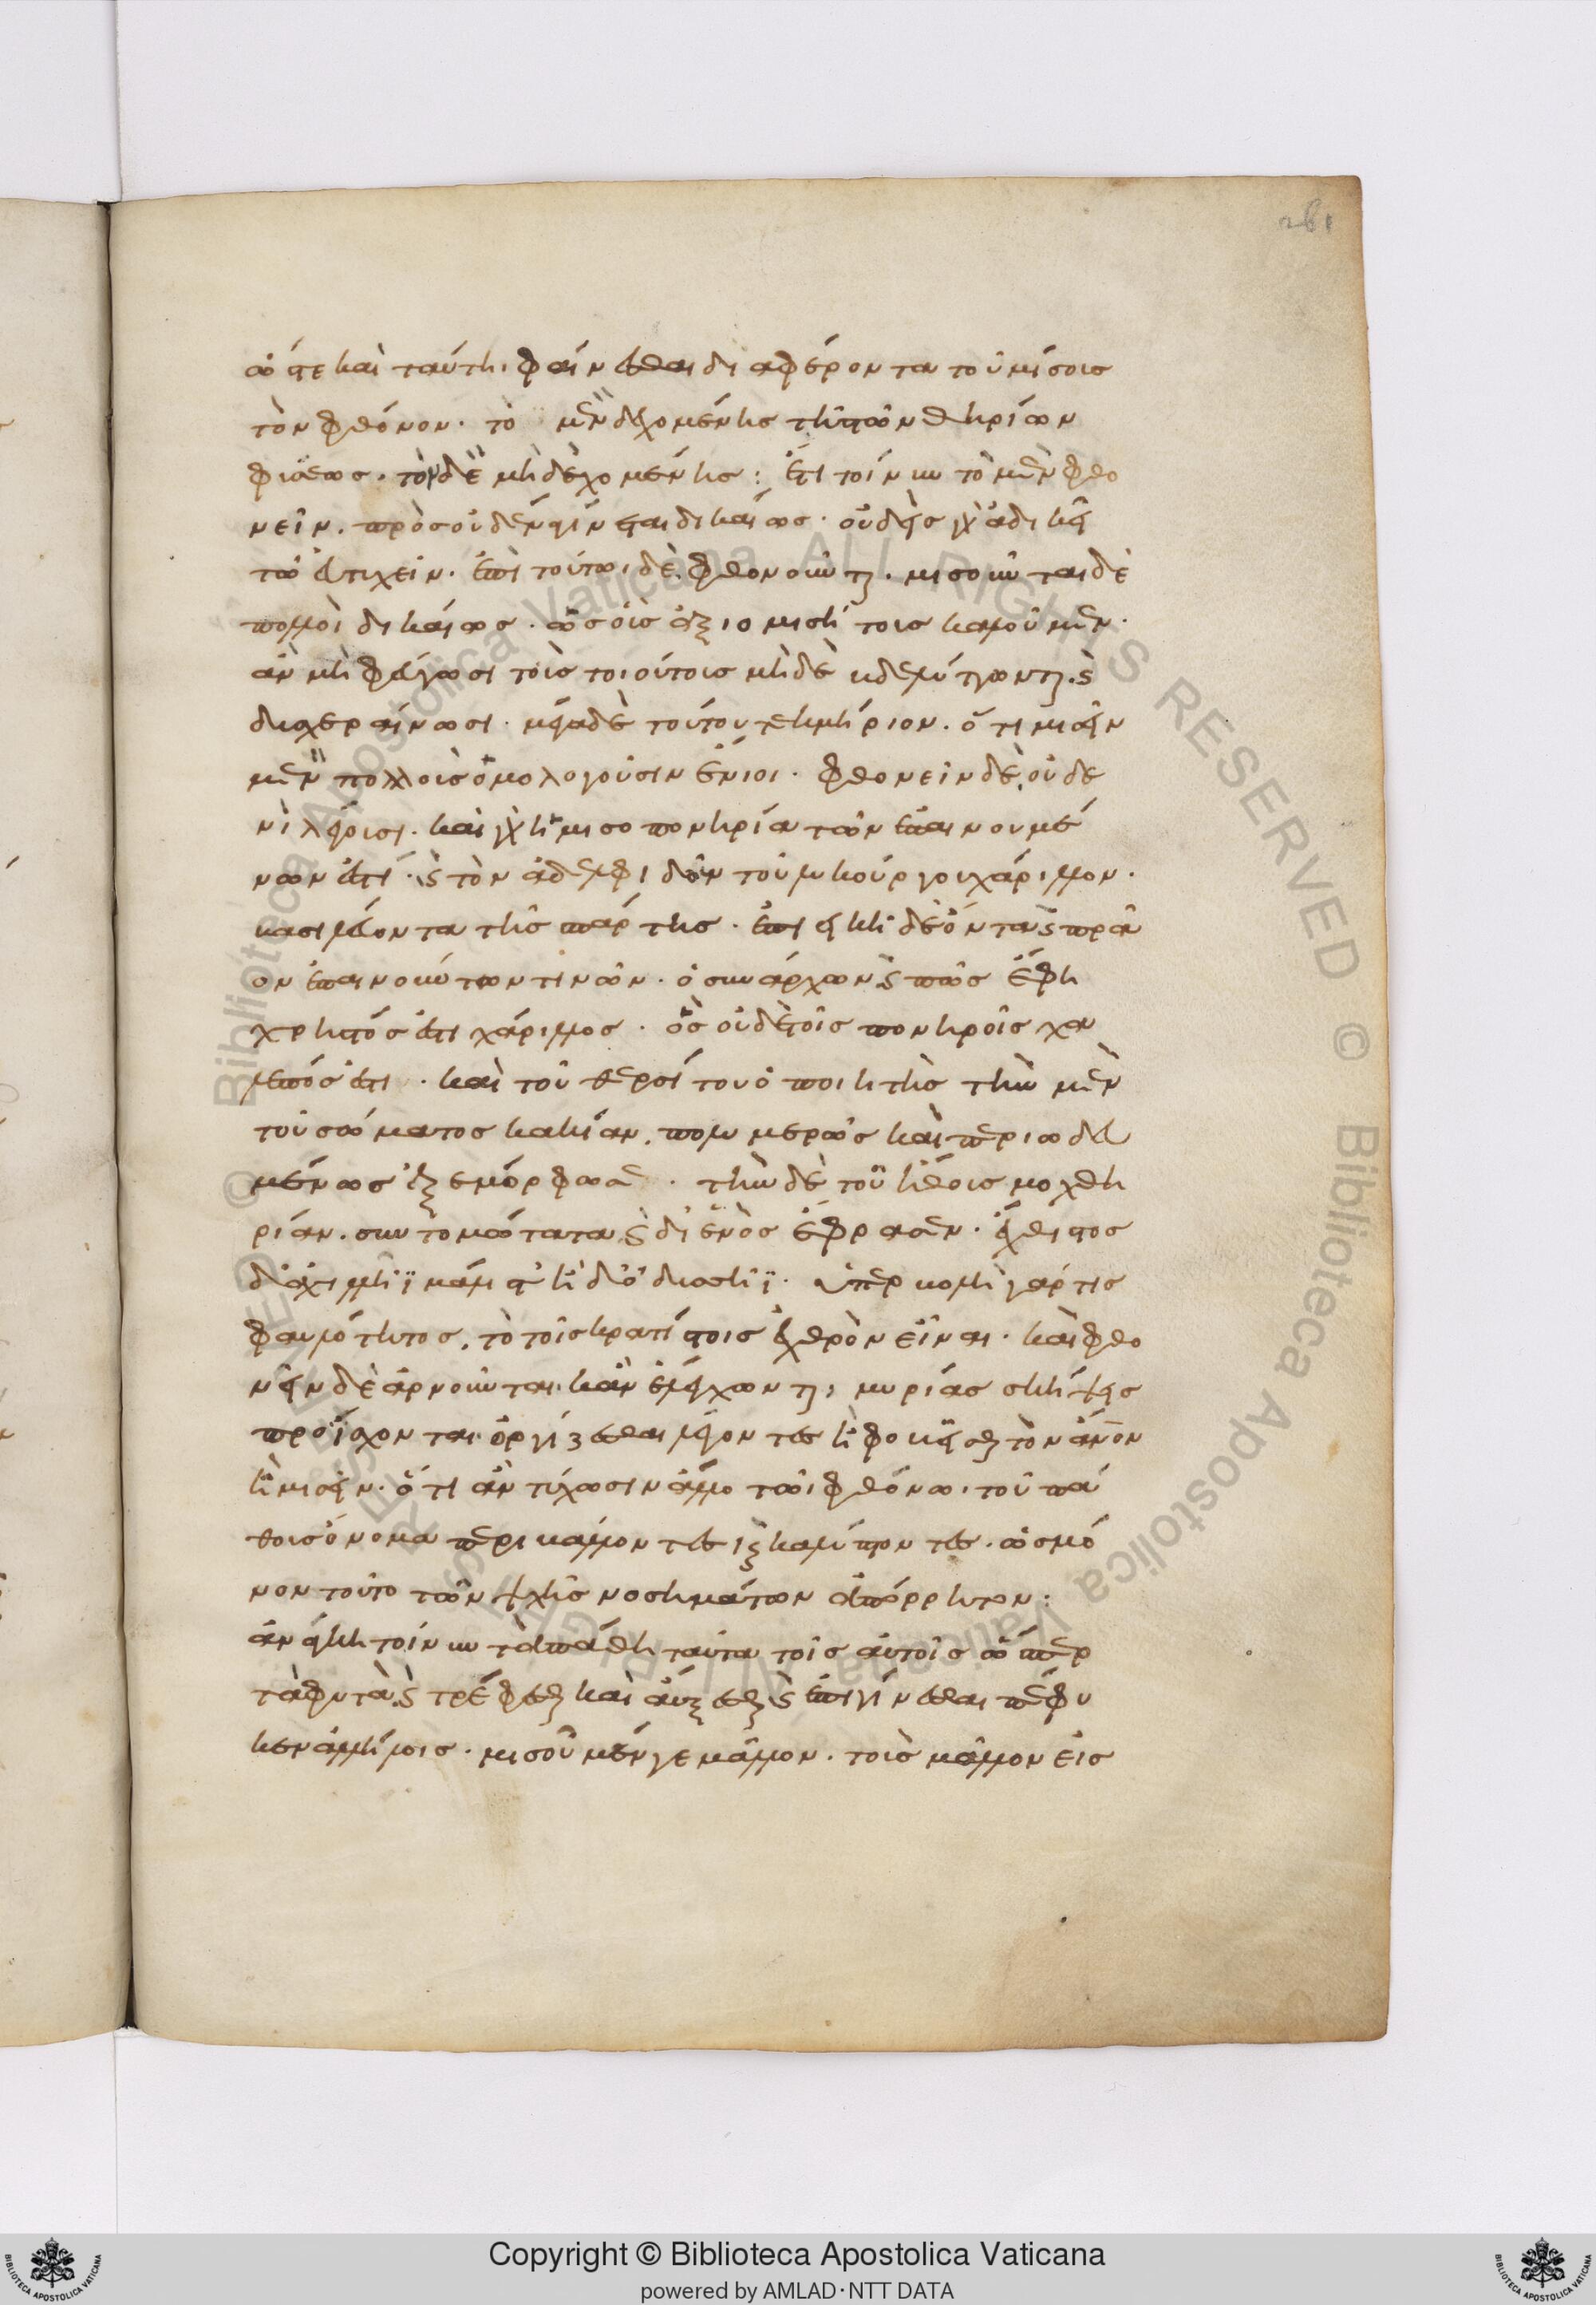 261
ὥστε καὶ ταύτηι φαίνεσθαι διαφέροντα τοῦ μίσους
τὸν φθόνον· τὸ μὲν δεχομένης τῆς τῶν θηρίων
φύσεως· τὸν δὲ μὴ δεχομένης: ἔτι τοίνυν τὸ μὲν φθο
νεῖν. πρὸς οὐδένα γίνεται δικαίως· οὐδεὶς γὰρ ἀδικεῖ
τῶ εὐτυχεῖν. ἐπὶ τούτωι δὲ φθονοῦνται. μισοῦνται δὲ
πολλοὶ δικαίως· ὡς οὓς ἀξιομισήτους καλοῦμεν·
ἂν μὴ φεύγωσι τοὺς τοιούτους μηδὲ βδελύττωνται καὶ
δυσχεραίνωσι· μέγα δὲ τούτου τεκμήριον. ὅτι μισεῖν
μὲν πολλοὺς ὁμολογοῦσιν ἔνιοι· φθονεῖν δὲ οὐδε
νὶ λέγουσι. καὶ γὰρ ἡ μισοπονηρία τῶν ἐπαινουμέ
νων ἐστί· καὶ τὸν ἀδελφιδοῦν τοῦ λυκούργου χάριλλον·
βασιλεύοντα τῆς σπάρτης· ἐπιεικῆ δὲ ὄντα καὶ πρᾶ
ον ἐπαινούντων τινῶν· ὁ συνάρχων καὶ πῶς ἔφη
χρηστός ἐστι χάριλλος· ὃς οὐδὲ τοῖς πονηροῖς χα
λεπός ἐστι· καὶ τοῦ θερσίτου ὁ ποιητὴς τὴν μὲν
τοῦ σώματος κακίαν. πολυμερῶς καὶ περιωδευ
μένως ἐξεμόρφωσε· τὴν δὲ τοῦ ἤθους μοχθη
ρίαν. συντομώτατα καὶ δι' ἑνὸς ἔφρασεν· ἔχθιστος
δ' ἀχιλλῆϊ μάλιστ' ἦ δ' ὀδυσῆϊ· ὑπερβολὴ γάρ τις
φαυλότητος. τὸ τοῖς κρατίστοις ἐχθρὸν εἶναι· καὶ φθο
νεῖν δὲ ἀρνοῦνται κἂν ἐλέγχωνται, μυρίας σκήψεις
προΐσχονται ὀργίζεσθαι λέγοντες ἢ φοβεῖσθαι τὸν ἄνον
ἢ μισεῖν· ὅτι ἂν τύχωσιν ἄλλο τῶι φθόνωι τοῦ πά
θους ὄνομα περιβάλλοντες καὶ καλύπτοντες· ὡς μό
νον τοῦτο τῶν ψχῆς νοσημάτων ἀπόρρητον:
ἀνάγκη τοίνυν τὰ πάθη ταῦτα τοῖς αὐτοῖς ὥσπερ
τὰ φυτὰ καὶ τρέφεσθαι καὶ αὔξεσθαι καὶ ἐπιγίνεσθαι πέφυ
κεν ἀλλήλοις· μισοῦμέν γε μᾶλλον· τοὺς μᾶλλον εἰς
© Biblioteca Apostolica Vaticana ALL RIGHTS RESERVED
Copyright © Biblioteca Apostolica Vaticana
powered by AMLAD·NTT DATA
BIBLIOTECA APOSTOLICA VATICANA
BIBLIOTECA APOSTOLICA VATICANA